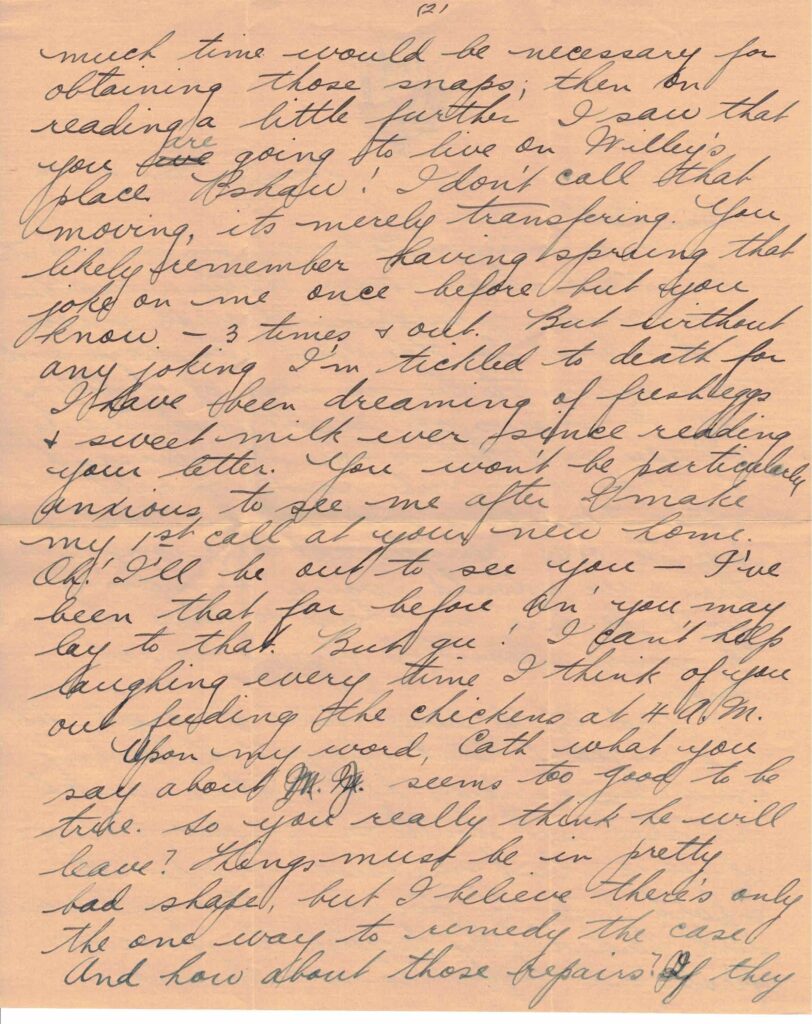 (2)
much time would be necessary for
obtaining those snaps; then on
reading a little further I saw that
you are going to live on Willey's
place. Pshaw! I don't call that
moving, its merely transfering. You
likely remember having sprung that
joke on me once before but you
know – 3 times & out. But without
any joking I'm tickled to death for
I have been dreaming of fresh eggs
& sweet milk ever since reading
your letter. You won't be particularly
anxious to see me after I make
my 1st call at your new home.
Oh! I'll be out to see you – I've
been that far before an' you may
lay to that. But gee! I can't help
laughing every time I think of you
out feeding the chickens at 4 A.M.
Upon my word, Cath what you
say about seems too good to be
true. So you really think he will
leave? Things must be in pretty
bad shape, but I believe there's only
the one way to remedy the case
And how about those repairs? If they